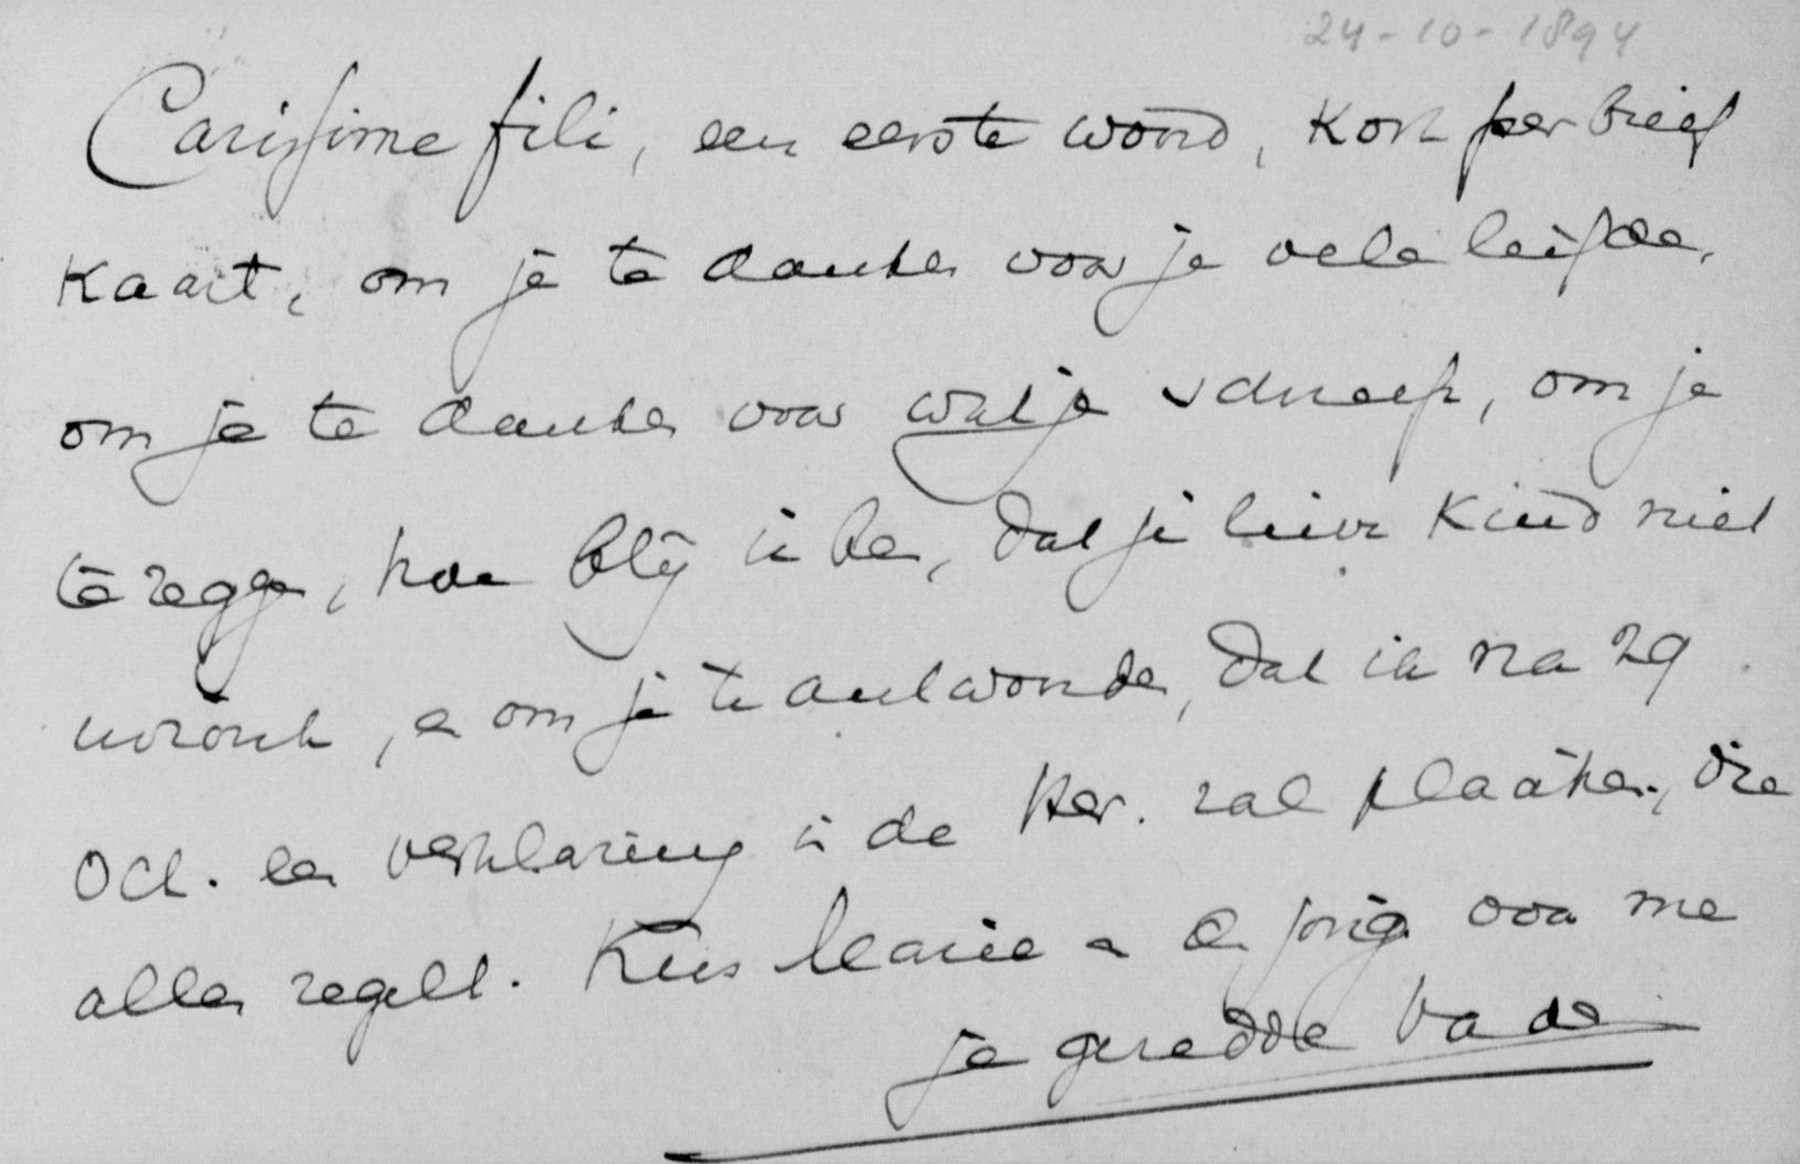 24-10-1894
Carissime fili, een eerste woord, kort per brief
kaart, om je te danken voor je vele liefde,
om je te danken voor wat je schreef, om je
te zeggen, hoe blij ik ben, dat je liever kind niet
wordt, en om je te antwoorden, dat ik na 29
Oct. een verklaring in de Her. zal plaatsen, die
alles regelt. Kus Marie en de voor me
je geredde Vader